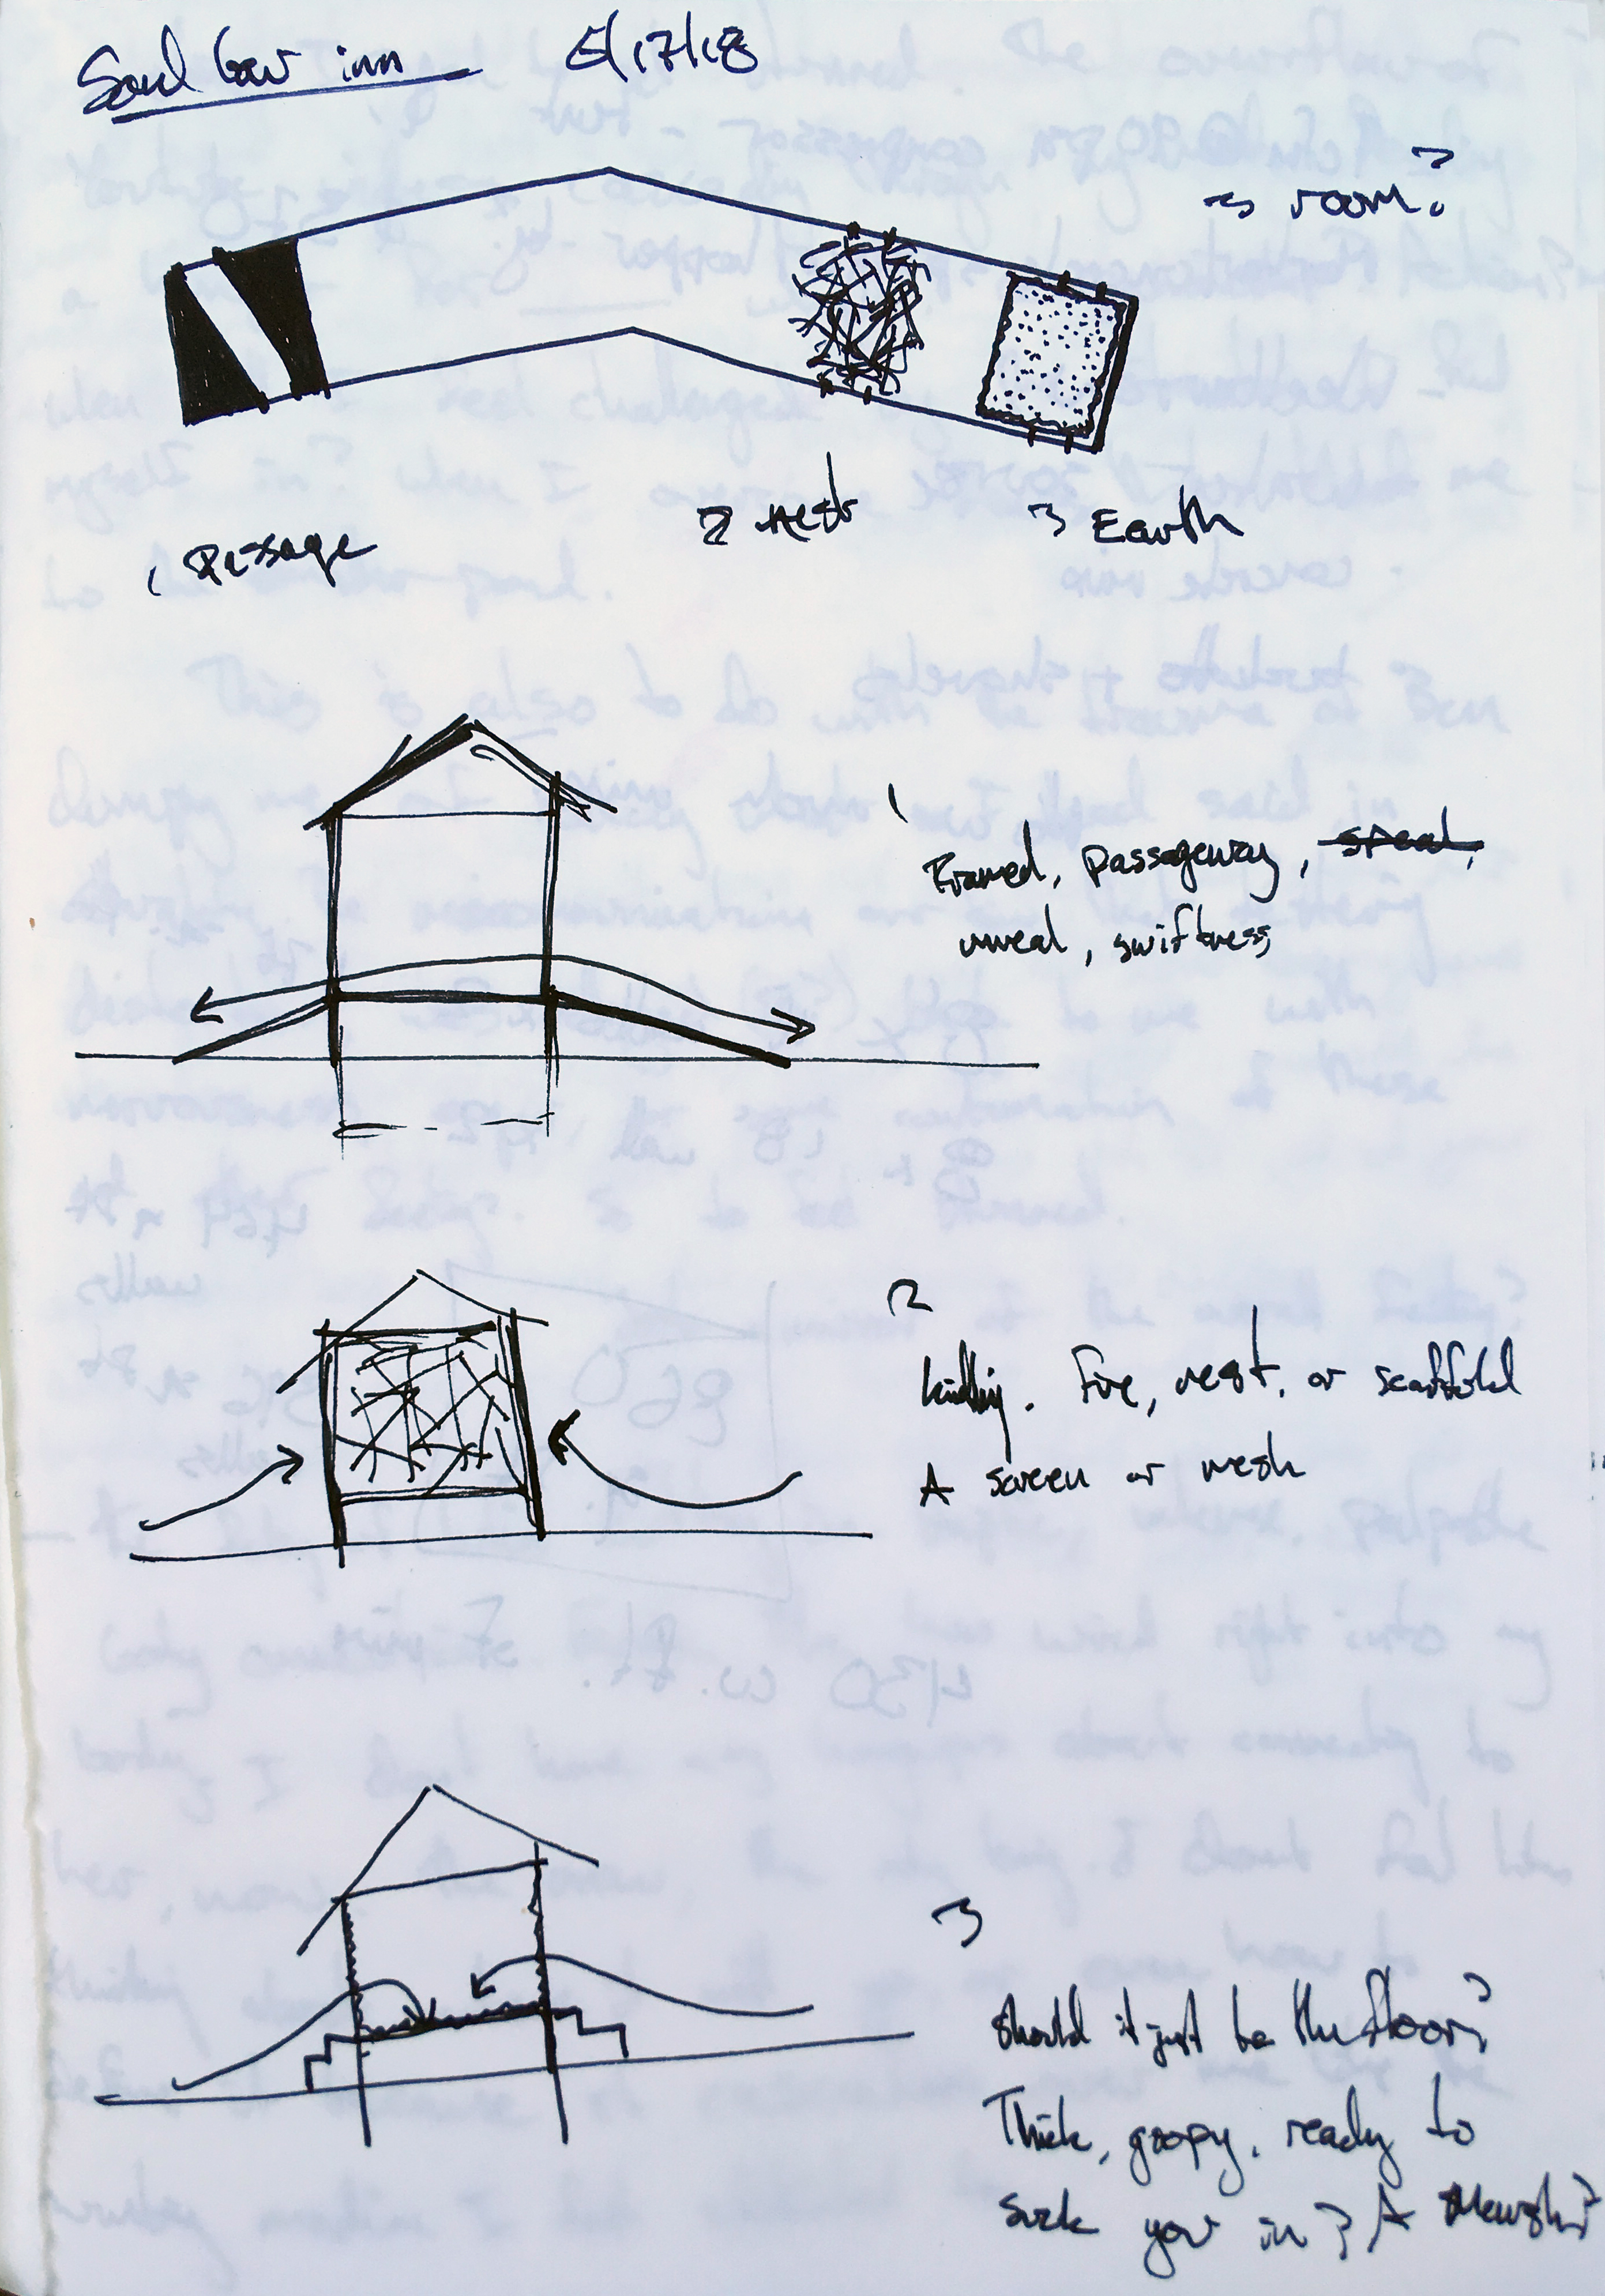 Soul Cow inn 5/17/18
→ room?
1 Passage
2 Nest
3 Earth
1
Framed, passageway, speed,
unreal, swiftness
2
kindling. Fire, nest, or scaffold
A screen or mesh
3
Should it just be the floor?
Thick, goopy, ready to
suck you in? A Marsh?